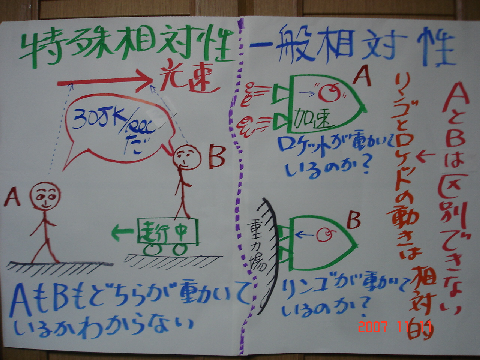 特殊相対性
光速
30万K/sec
だ
A
B
走行中
AもBもどちらが動いて
いるかわからない
一般相対性
A
加速
ロケットが動いて
いるのか?
B
重力場
リンゴが動いて
いるのか?
AとBは区別できない
リンゴとロケットの動きは相対的